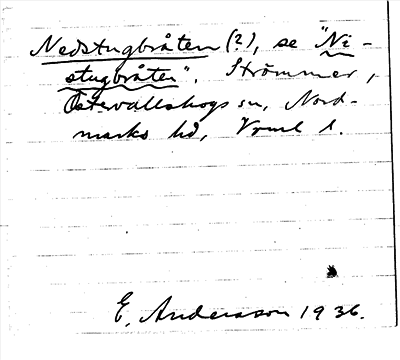 Nedstugbråten (?), se "Ni-
stugbråten", Strömmer,
Östervallskogs sn, Nord-
marks hd, Vrml l.
E. Andersson 1936.